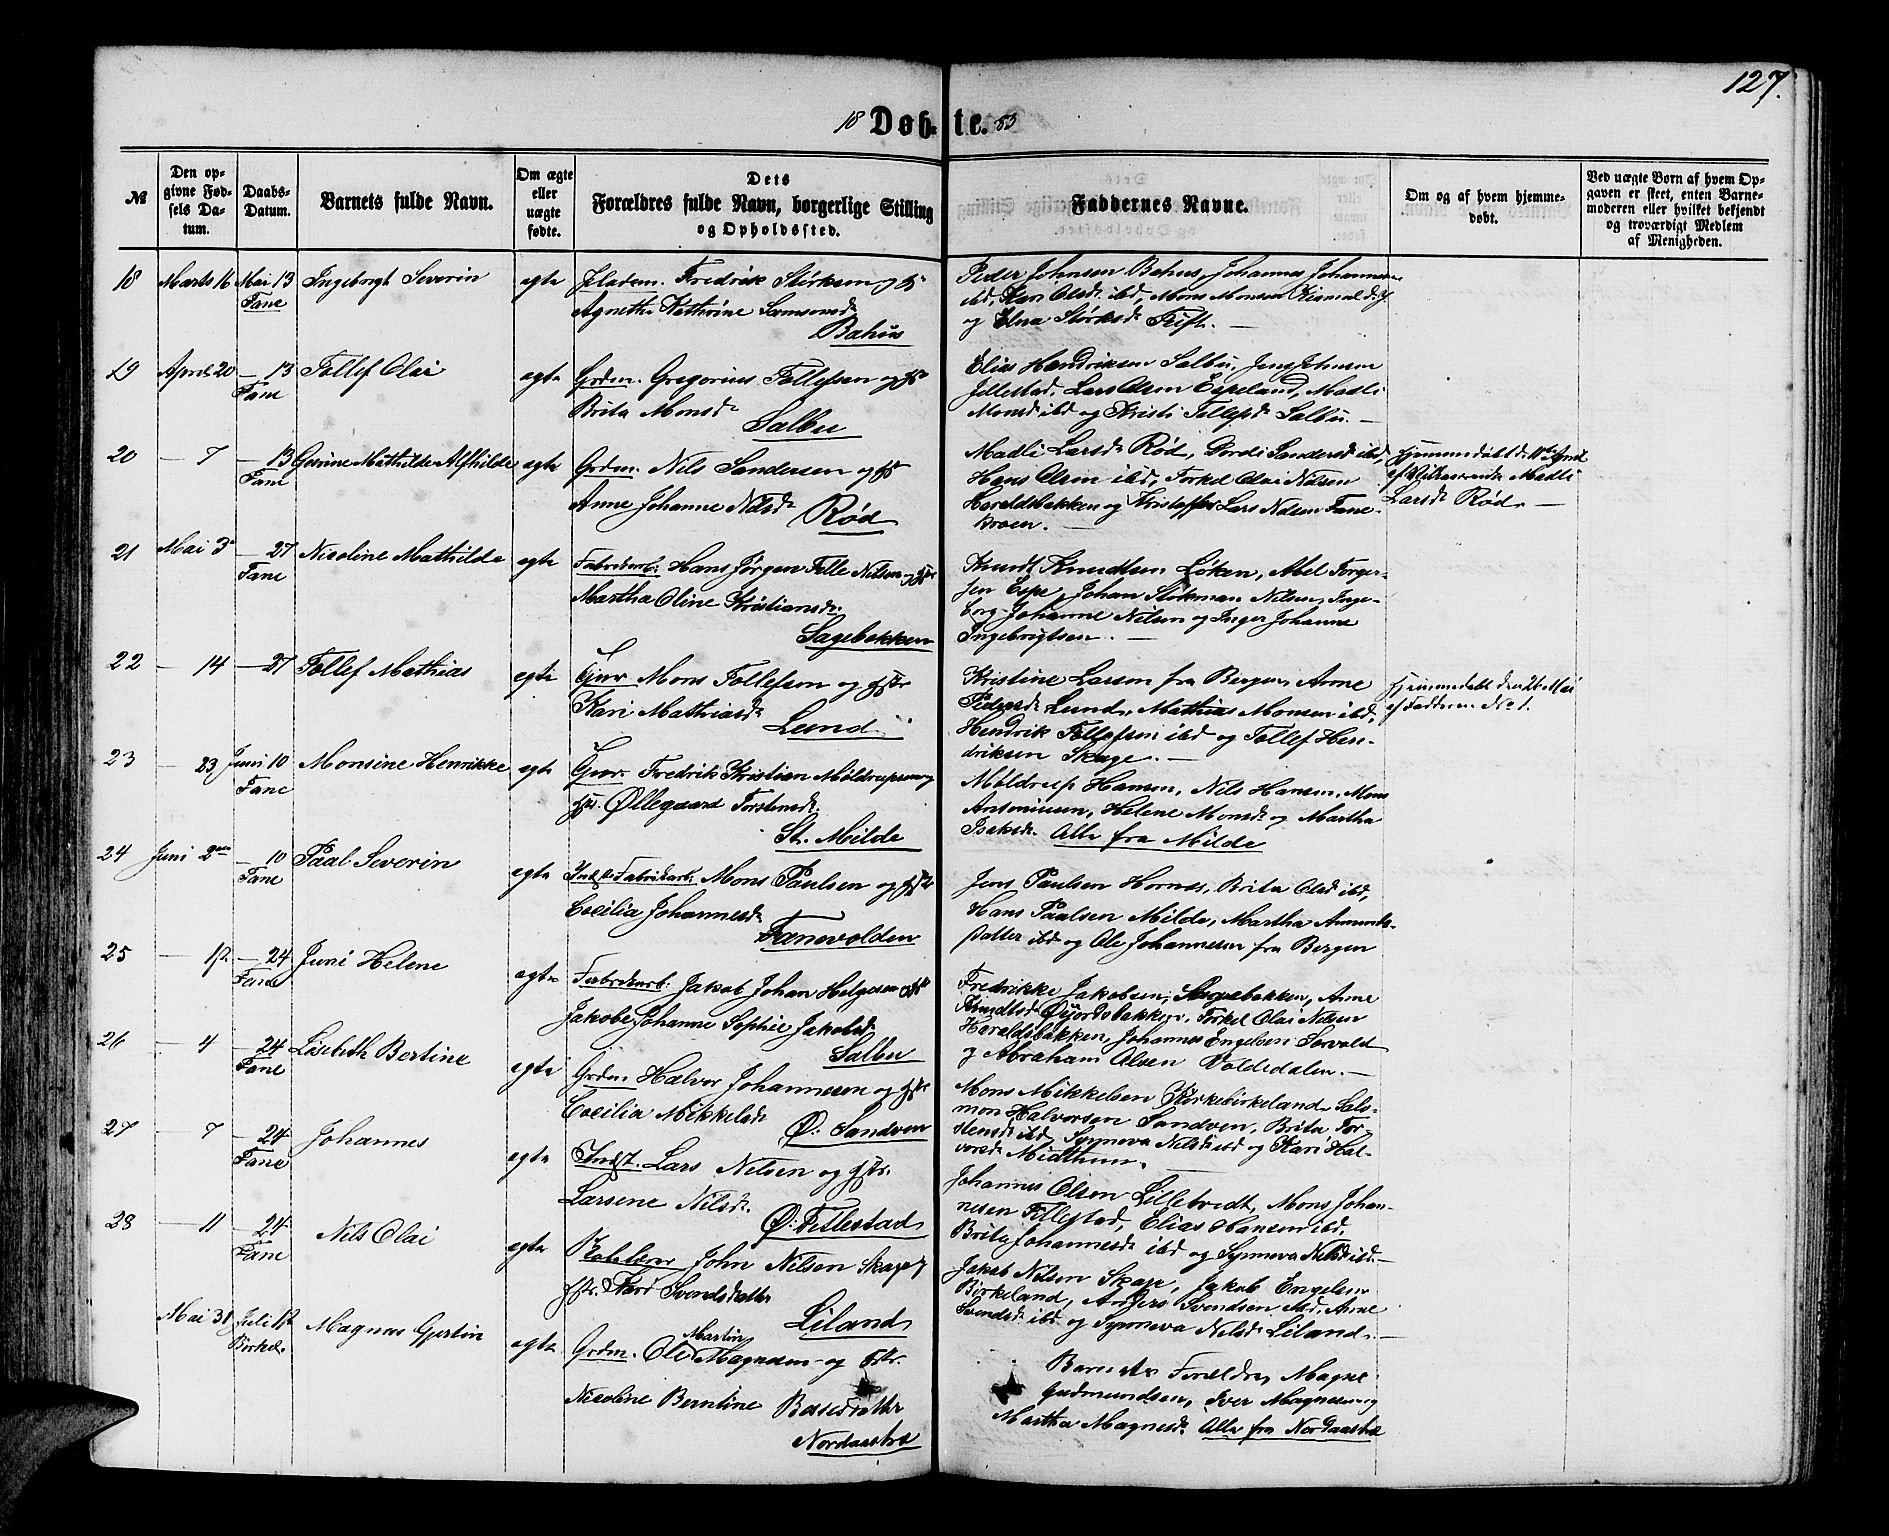 127.
18 Døb- te. 83
№
Den op-
givne Fød-
sels Da-
tum.
Daabs-
Datum.
Barnets fulde Navn.
Om ægte
eller
uægte
fødte.
Dets
Forældres fulde Navn, borgerlige Stilling
og Opholdssted.
Faddernes Navne.
Om og af hvem hjemme-
døbt.
Ved uægte Børn af hvem Op-
gaven er skeet, enten Barne-
moderen eller hvilket bekjendt
og troværdigt Medlem
af Menigheden.
18 Marts 16 Mai 13 Ingeborgt Severin egte Fredrik Störksen og
Fane Agnethe Kathrine Samsonsd.
Bahus
Peder Johnsen Bahus, Johannes Johannesen
ibd, Kari Olsd. ibd, Mons Monsen
og Elna Störksd. Trift. —
19 April 20 — 13 Tollef Olai egte Grdm. Gregorius Tollefsen og Hstr
Fane Brita Monsd.
Salbu
Elias Hendriksen Salbu, Jens Johnsen
Lars Olsen Espeland, Madli
Monsd. ibd og Kristi Tollefsd. Salbu. —
20 — 7 — 13 Gurine Mathilde Alfhilde egte Grdm. Nils Sandersen og Hstr
Fane Anne Johanne Nilsd.
Rød
Madli Larsd. Rød, Dordi Sandersd. ibd,
Hans Olsen ibd, Torkel Olai Nilsen
Haraldsbakken og Kristoffer Lars Nilsen Fane-
broen. —
Hjemmedøbt d. April
af Madli
Larsd. Rød. —
21 Mai 3 — 27 Nicoline Mathilde egte Fabrikarb. Hans Jørgen Nilsen og Hstr
Fane Martha Oline Kristiansd.
Sagebakken
Knudt Knudtsen Løken, Abel Torger-
sen Espe, Johan Nilsen, Inge-
borg Johanne Nilsen og Inger Johanne
Ingebrigtsen. —
22 — 14 — 27 Tollef Mathias egte Gjør Mons Tollefsen og Hstr
Kari Mathiasd.
Lund
Kristine Larsen fra Bergen, Anne
Pedersd. Lund, Mathias Monsen ibd,
Hendrik Tollefsen ibd og Tollef Hen-
driksen Skage. —
Hjemmedøbt den 26 Mai
af Fadderen No 1.
23 — 23 Juni 10 Monsine Henrikke egte Fredrik Kristian
Fane Hstr. Øllegaard Torstensd.
St. Milde
Mildreep Hansen, Nils Hansen, Mons
Antonisen, Helene Monsd. og Martha
Isaksd. Alle fra Milde
24 Juni 2den — 10 Paal Severin egte Indst. Fabrikarb. Mons Paulsen og Hstr
Fane Cecilia Johannesd.
Fanevolden
Jens Paulsen Hornes, Brita Olsd. ibd,
Hans Paalsen Milde, Martha
datter ibd og Ole Johannesen fra Bergen
25 — — 24 Juni Helene egte Fabrikarb. Jakob Johan Helgesen Hstr
Fane Jakobe Johanne Sophie Jakobsd.
Salbu
Fredrikke Jakobsen, Sagebakken, Anne
Knudtsd. Torkel Olai Nilsen
Haraldsbakken, Johannes Engelsen Sorvold
og Abraham Olsen Voldedalen. —
26 — 4 — 24 Lisebeth Bertine egte Grdm Halvor Johannesen og Hstr
Fane Cecilia Mikkelsd.
Ø. Sandven
Mons Mikkelsen Kirkebirkeland, Salo-
mon Halvorsen Sandven, Brita Tor-
stensd. ibd, Synneva Nilsd. ibd og Kari Hal-
vorsd. Midthun.
27 — 7 — 24 Johannes egte Indst. Lars Nilsen og Hstr.
Fane Larsene Nilsd.
Ø. Titlestad
Johannes Olsen Lillebredt, Mons Johan-
nesen Titlestad, Elias Hansen ibd,
Brita Johannesd. ibd og Synneva Nilsd. ibd. —
28 — 11 — 24 Nils Olai egte John Nilsen Skage og
Fane Hstr. Kari Svendsdatter
Liland
Jakob Nilsen Skage, Jakob Engelsen
Birkeland, Anders Svendsen ibd, Anne
Svendsd. ibd og Synneva Nilsd. Liland. —
Mai 31 Juli 1st Magnus Gjertin egte Grdm. Ole Martin Magnesen og Hstr.
Birkel. Nicoline Berntine Bossedatter
Nordaastræ
Barnets Forældre, Magne
Gudmundsen, Iver Magnesen og
Martha Magnesd. Alle fra Nordaastræ